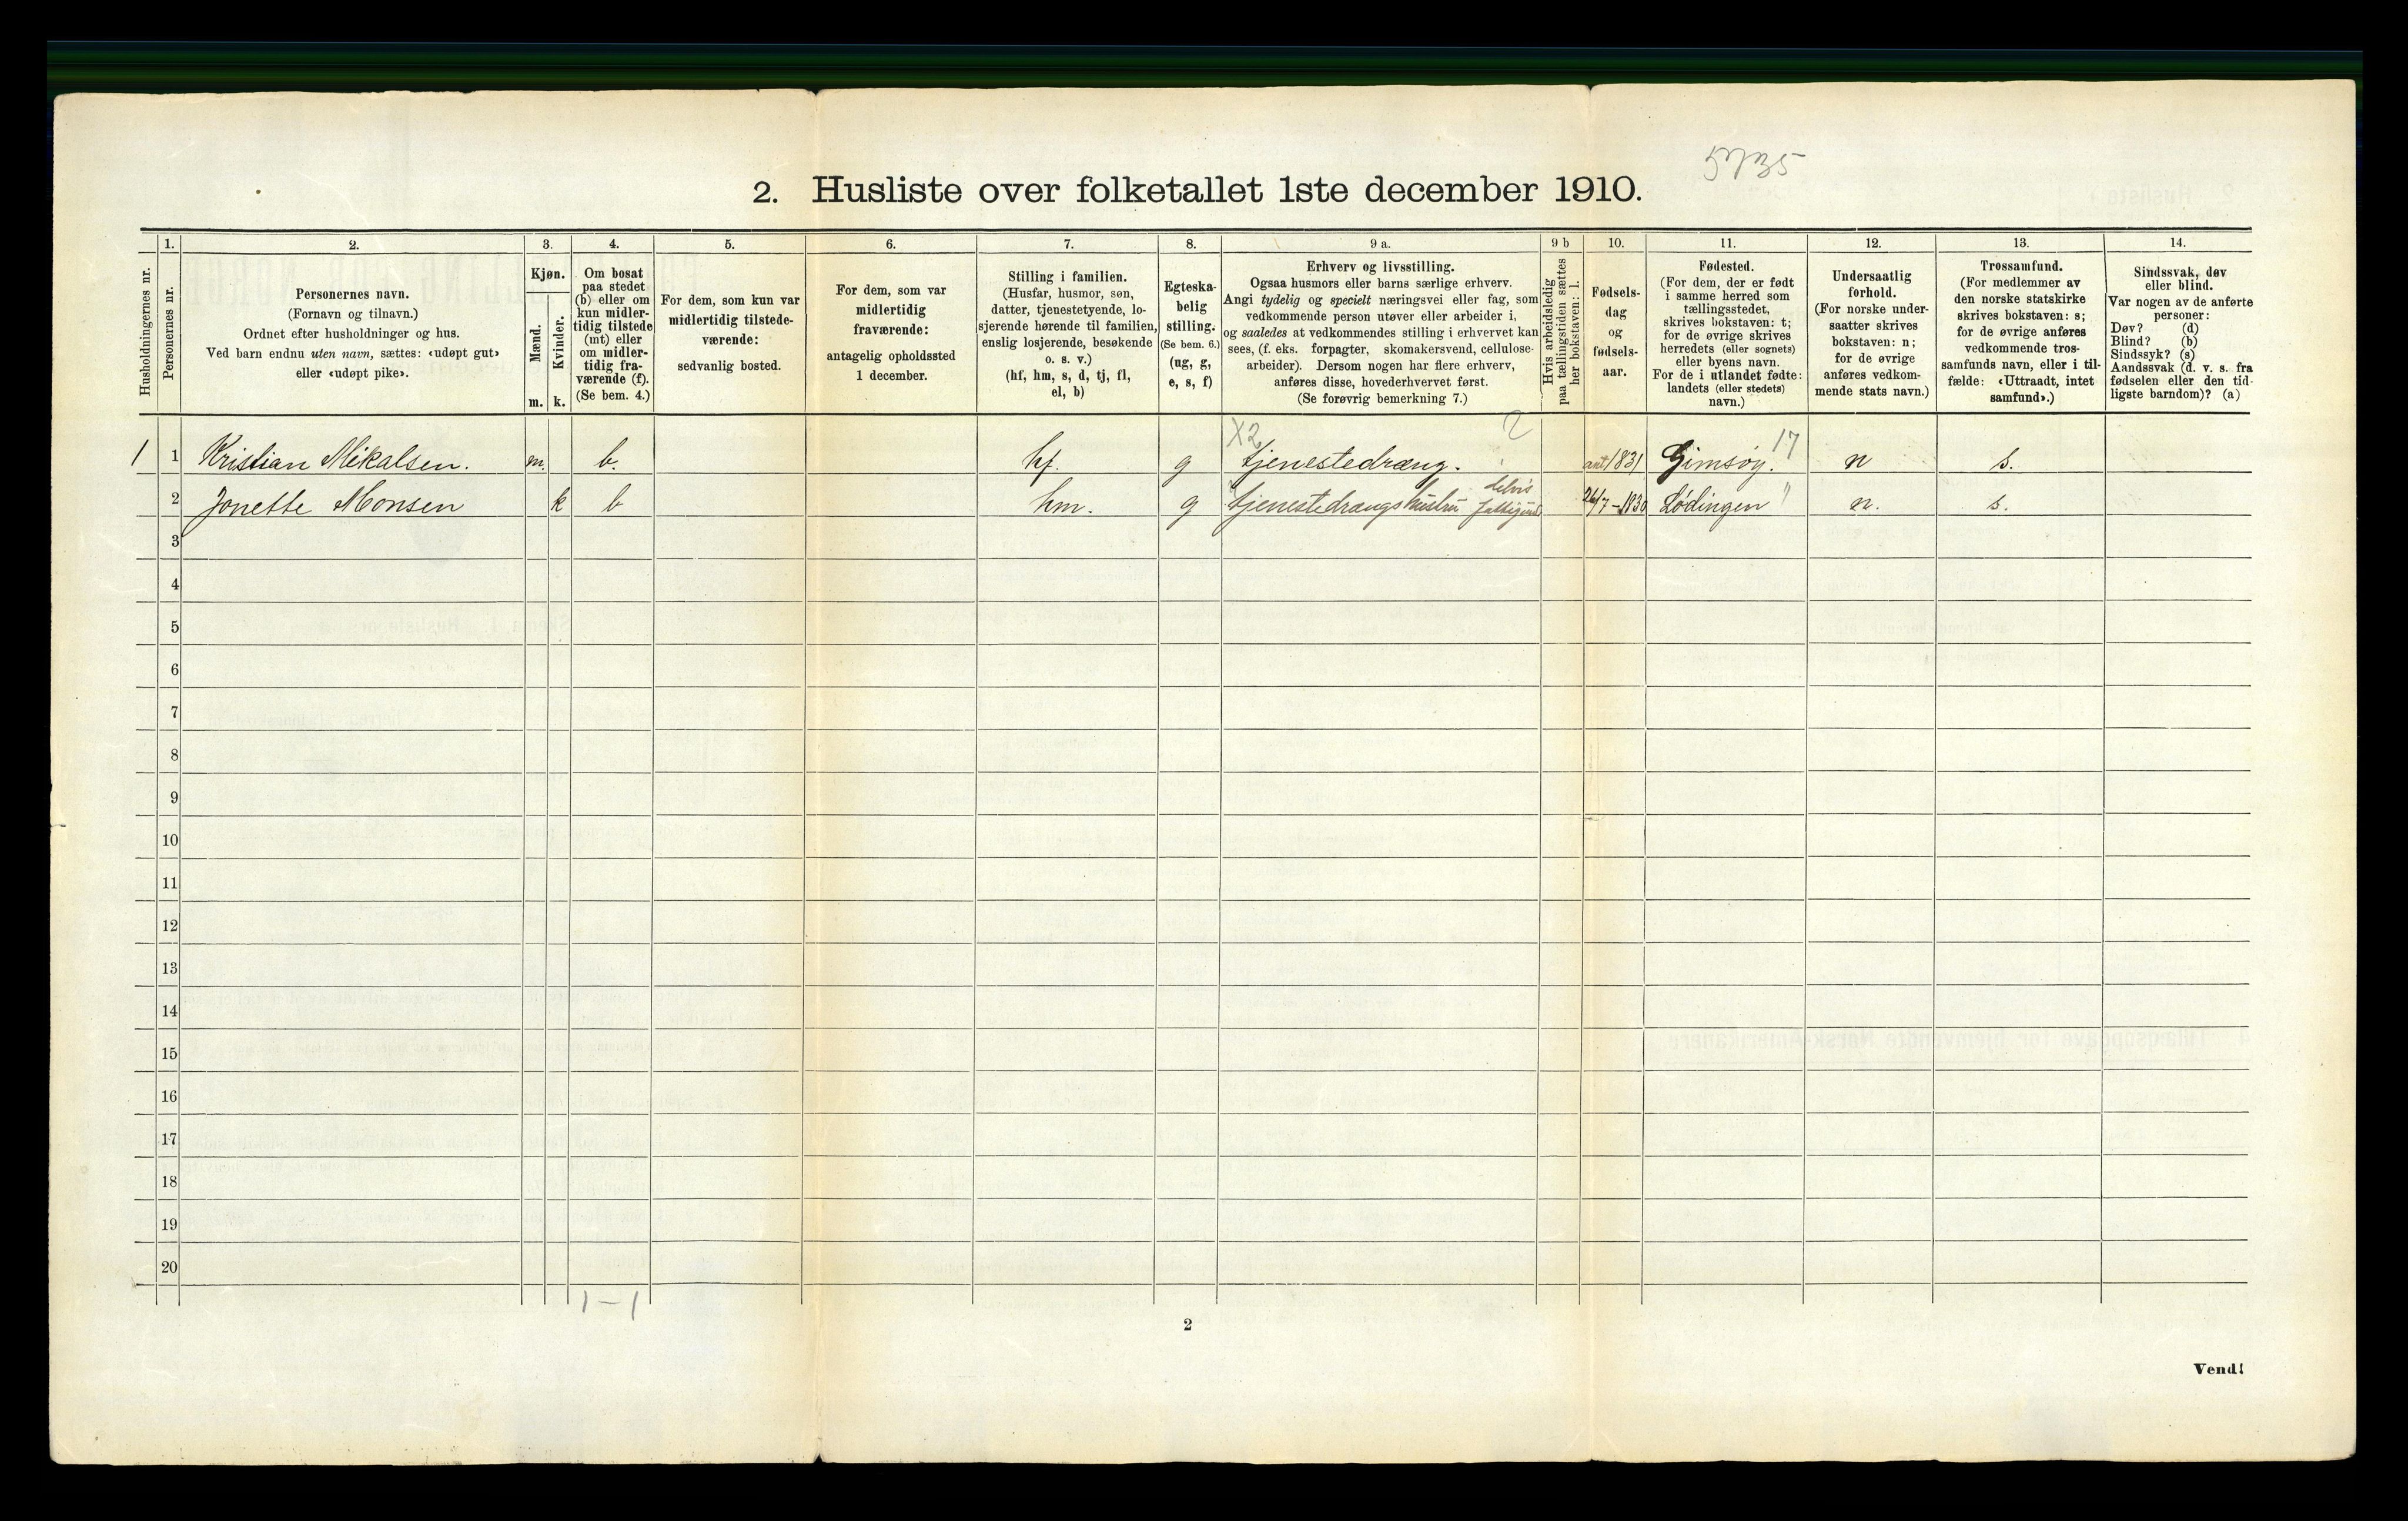 5735
2. Husliste over folketallet 1ste december 1910.
Husholdningernes nr.
1.
Personernes nr.
2.
Personernes navn.
(Fornavn og tilnavn.)
Ordnet efter husholdninger og hus.
Ved barn endnu uten navn, sættes: «udøpt gut»
eller «udøpt pike».
3.
Kjøn.
Mænd.
m.
Kvinder.
k.
4.
Om bosat
paa stedet
(b) eller om
kun midler-
tidig tilstede
(mt) eller
om midler-
tidig fra-
værende (f).
(Se bem. 4.)
5.
For dem, som kun var
midlertidig tilstede-
værende:
sedvanlig bosted.
6.
For dem, som var
midlertidig
fraværende:
antagelig opholdssted
1 december.
7.
Stilling i familien.
(Husfar, husmor, søn,
datter, tjenestetyende, lo-
sjerende hørende til familien,
enslig losjerende, besøkende
o. s. v.)
(hf, hm, s, d, tj, fl,
el, b)
8.
Egteska-
belig
stilling.
(Se bem. 6.)
(ug, g,
e, s, f)
9 a.
Erhverv og livsstilling.
Ogsaa husmors eller barns særlige erhverv.
Angi tydelig og specielt næringsvei eller fag, som
vedkommende person utøver eller arbeider i,
og saaledes at vedkommendes stilling i erhvervet kan
sees, (f. eks. forpagter, skomakersvend, cellulose-
arbeider). Dersom nogen har flere erhverv,
anføres disse, hovederhvervet først.
(Se forøvrig bemerkning 7.)
9 b
Hvis arbeidsledig
paa tællingstiden sættes
her bokstaven: l.
10.
Fødsels-
dag
og
fødsels-
aar.
11.
Fødested.
(For dem, der er født
i samme herred som
tællingsstedet,
skrives bokstaven: t;
for de øvrige skrives
herredets (eller sognets)
eller byens navn.
For de i utlandet fødte:
landets (eller stedets)
navn.)
12.
Undersaatlig
forhold.
(For norske under-
saatter skrives
bokstaven: n;
for de øvrige
anføres vedkom-
mende stats navn.)
13.
Trossamfund.
(For medlemmer av
den norske statskirke
skrives bokstaven: s;
for de øvrige anføres
vedkommende tros-
samfunds navn, eller i til-
fælde: «Uttraadt, intet
samfund».)
14.
Sindssvak, døv
eller blind.
Var nogen av de anførte
personer:
Døv? (d)
Blind? (b)
Sindssyk? (s)
Aandssvak (d. v. s. fra
fødselen eller den tid-
ligste barndom)? (a)
X2 2 17
1 1 Kristian Mikalsen. m. b. hf. g tjenestedræng. ant 1831 Gimsøy. n s.
2 Jonette Monsen k b hm. g tjenestedrængs hustru delvis 26/7-1830 Lødingen " n. s.
3
4
5
6
7
8
9
10
11
12
13
14
15
16
17
18
19
20
1-1
2
Vend!